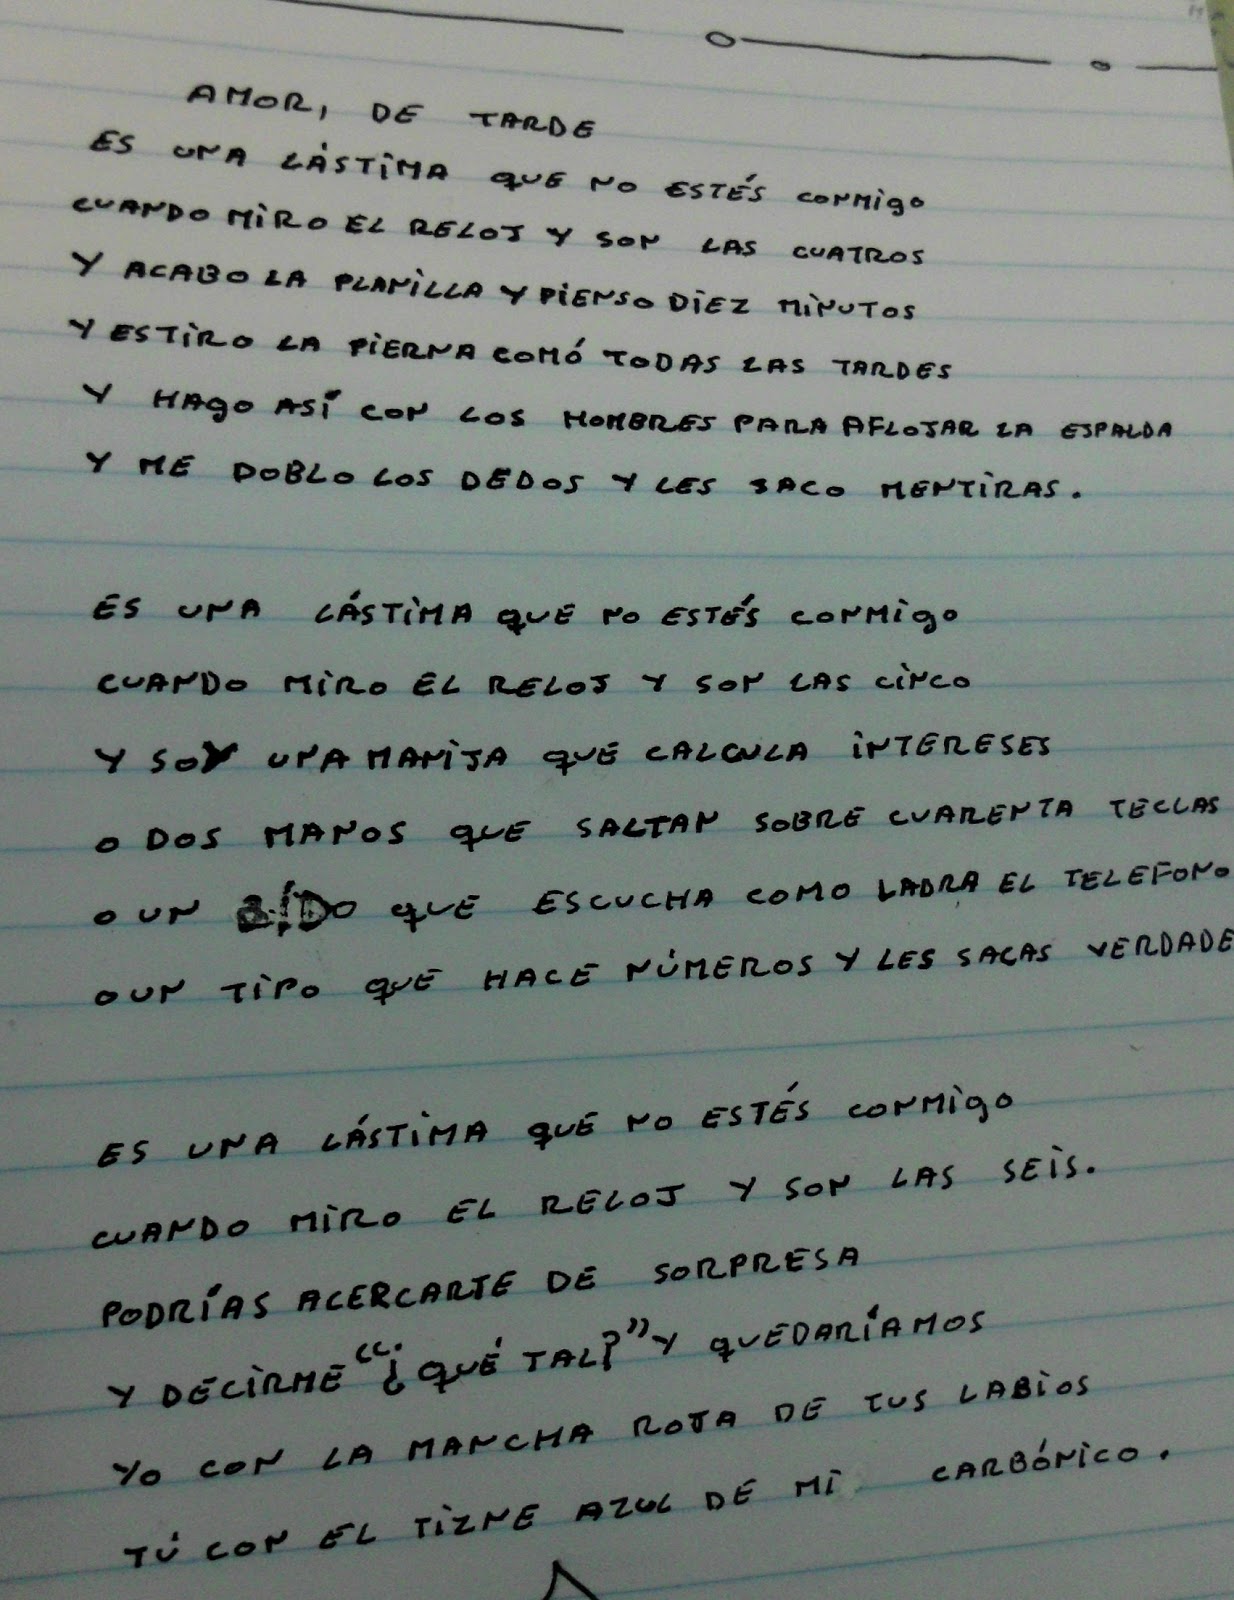 AMOR, DE TARDE
ES UNA LÁSTIMA QUE NO ESTÉS CONMIGO
CUANDO MIRO EL RELOJ Y SON LAS CUATROS
Y ACABO LA PLANILLA Y PIENSO DIEZ MINUTOS
Y ESTIRO LA PIERNA COMÓ TODAS LAS TARDES
Y HAGO ASÍ CON LOS HOMBRES PARA AFLOJAR LA ESPALDA
Y ME DOBLO LOS DEDOS Y LES SACO MENTIRAS.
ES UNA LÁSTIMA QUE NO ESTÉS CONMIGO
CUANDO MIRO EL RELOJ Y SON LAS CINCO
Y SOY UNA MANIJA QUE CALCULA INTERESES
O DOS MANOS QUE SALTAN SOBRE CUARENTA TECLAS
O UN QUE ESCUCHA COMO LADRA EL TELEFONO
O UN TIPO QUE HACE NÚMEROS Y LES SACAS VERDADE
ES UNA LÁSTIMA QUE NO ESTÉS CONMIGO
CUANDO MIRO EL RELOJ Y SON LAS SEIS.
PODRÍAS ACERCARTE DE SORPRESA
Y DECIRME "¿QUÉ TAL?" Y QUEDARÍAMOS
YO CON LA MANCHA ROJA DE TUS LABIOS
TÚ CON EL TIZNE AZUL DE MI CARBÓNICO.